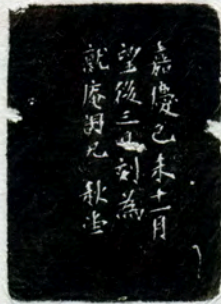 嘉慶己未十一月
望後三日刻為
就庵四兄 秋堂